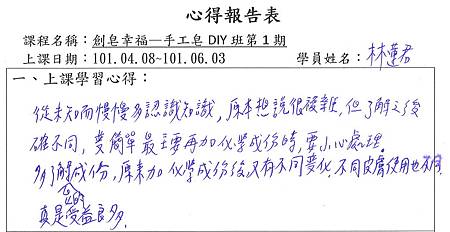 心得報告表
課程名稱：創皂幸福—手工皂 DIY 班第 1 期
上課日期：101.04.08~101.06.03　學員姓名：林蓮君
一、上課學習心得：
從未知而慢慢多認識知識，原本想說很複雜，但了解之後
確不同，變簡單最主要再加化學成份時，要小心處理。
多了解成份，原來加化學成份後又有不同變化，不同皮膚使用也不同
真是受益良多。